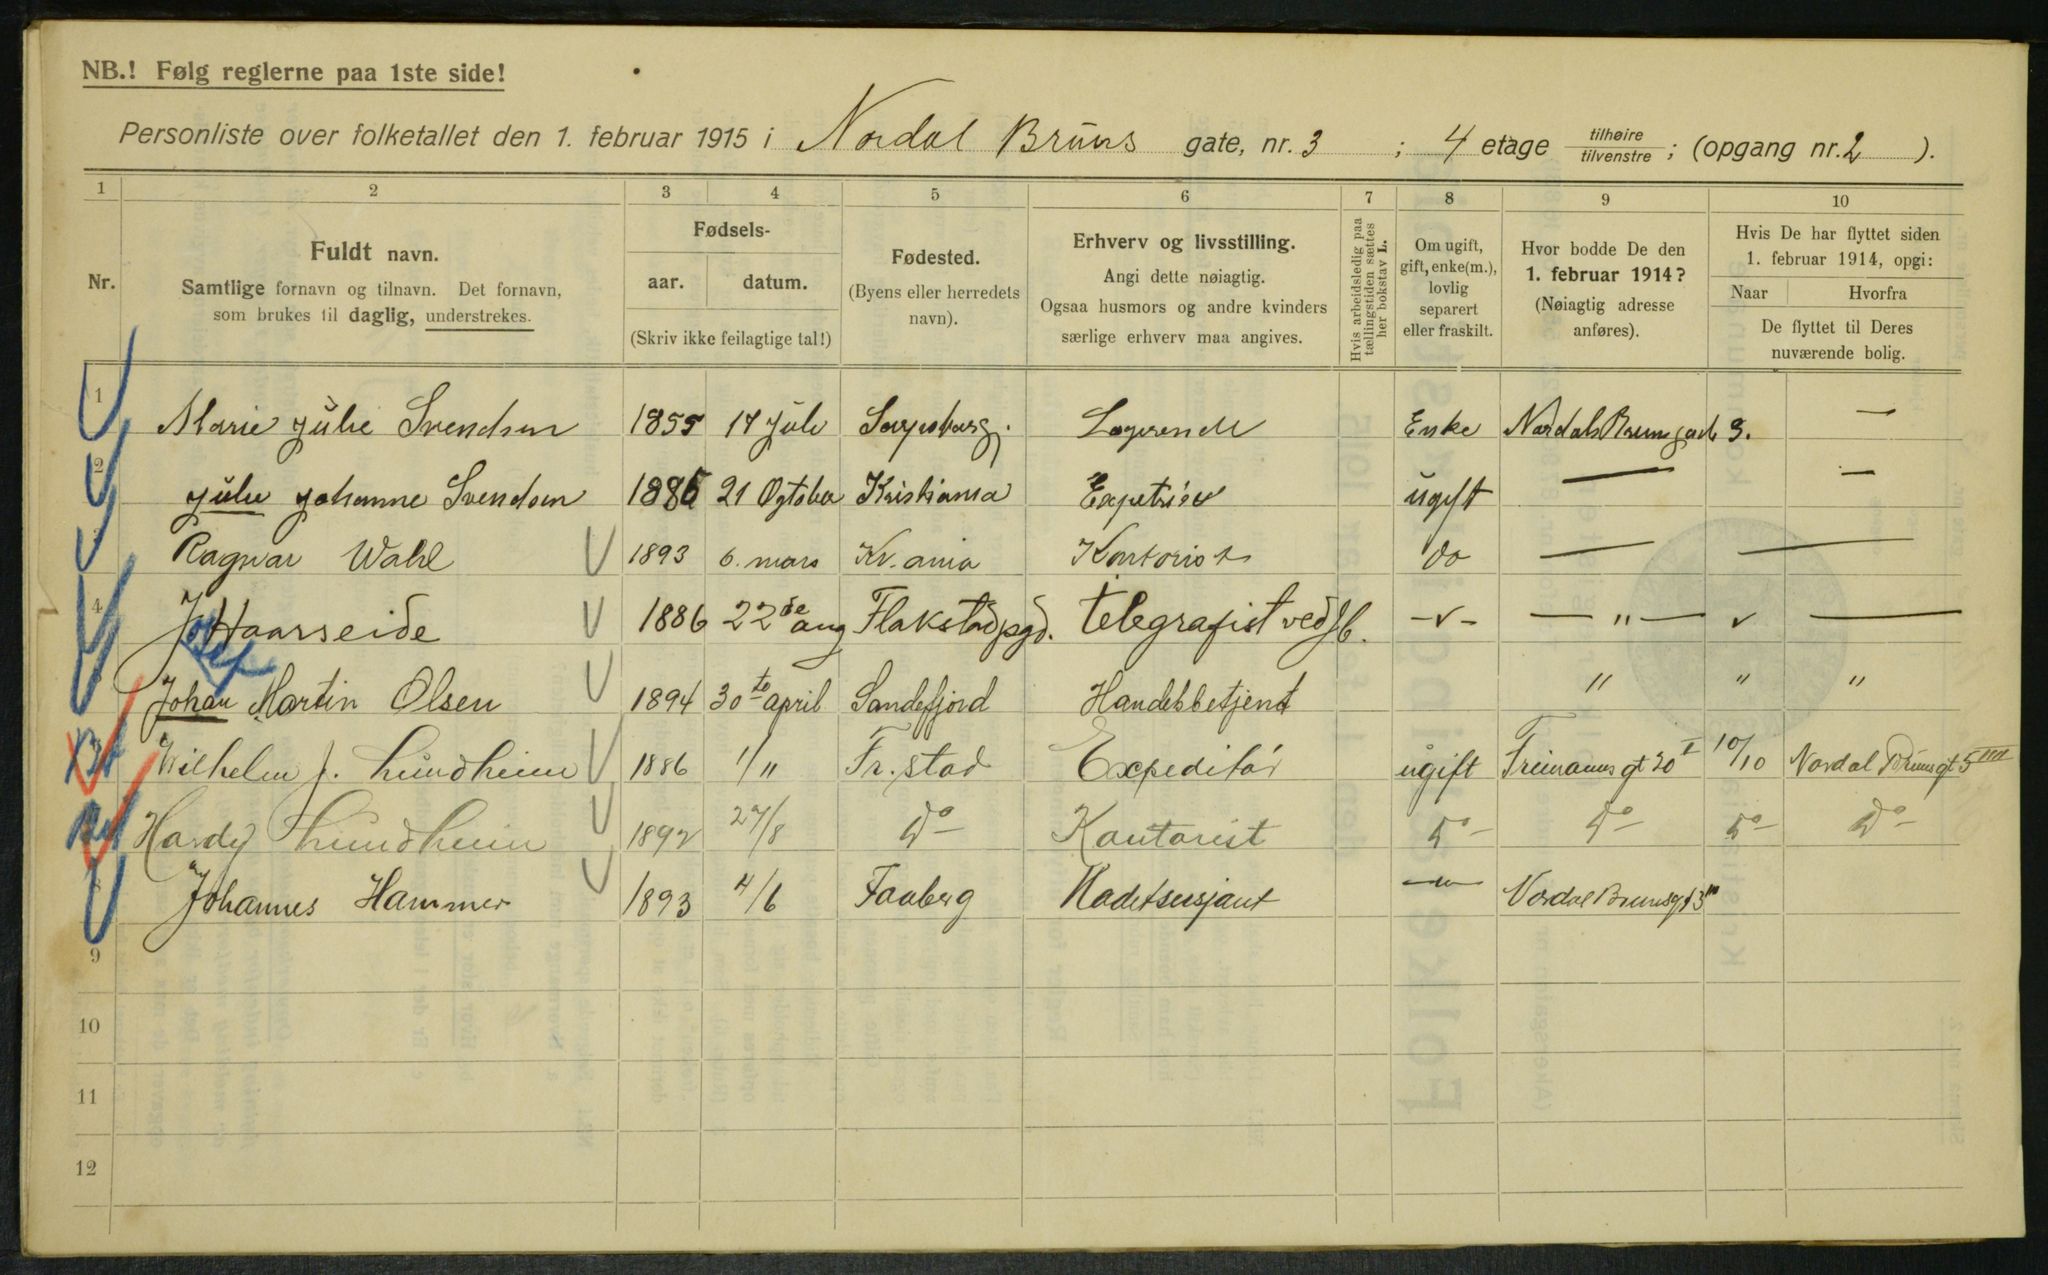 NB.! Følg reglerne paa 1ste side!
Personliste over folketallet den 1. februar 1915 i Nordal Bruns gate, nr. 3 ; 4 etage tilhøire tilvenstre ; (opgang nr. 2 ).
1 2 3 4 5 6 7 8 9 10
Nr.
Fuldt navn.
Samtlige fornavn og tilnavn. Det fornavn,
som brukes til daglig, understrekes.
Fødsels-
aar. datum.
(Skriv ikke feilagtige tal!)
Fødested.
(Byens eller herredets
navn).
Erhverv og livsstilling.
Angi dette nøiagtig.
Ogsaa husmors og andre kvinders
særlige erhverv maa angives.
Hvis arbeidsledig paa
tællingstiden sættes
her bokstav L.
Om ugift,
gift, enke(m.),
lovlig
separert
eller fraskilt.
Hvor bodde De den
1. februar 1914?
(Nøiagtig adresse
anføres).
Hvis De har flyttet siden
1. februar 1914, opgi:
Naar Hvorfra
De flyttet til Deres
nuværende bolig.
1 Marie Julie Svendsen 1855 17 Juli Sarpsborg. Logerende Enke Nordals Brunsgade 3. —
2 Julie Johanne Svendsen 1886 21 Ogtober Kristiania ugift — —
3 Ragnar Wahl 1893 6. mars Kr.ania Kontorist do — —
4 Josef Haarseide 1886 22de aug Flakstad pgd. telegrafist ved Jb. -v- — " — v —
Johan Martin Olsen 1894 30te april Sandefjord Handelsbetjent " " "
Wilhelm J. Lundheim 1886 1/" Fr.stad Expeditør ugift 10/10 Nordal Brunsgt 5 IIII
Hardy Lundheim 1892 27/8 Do Kontorist Do Do Do Do
8 Johannes Hammer 1893 4/6 Faaberg Kadetsersjant — Nordal Brunsgt 3
9
10
11
12